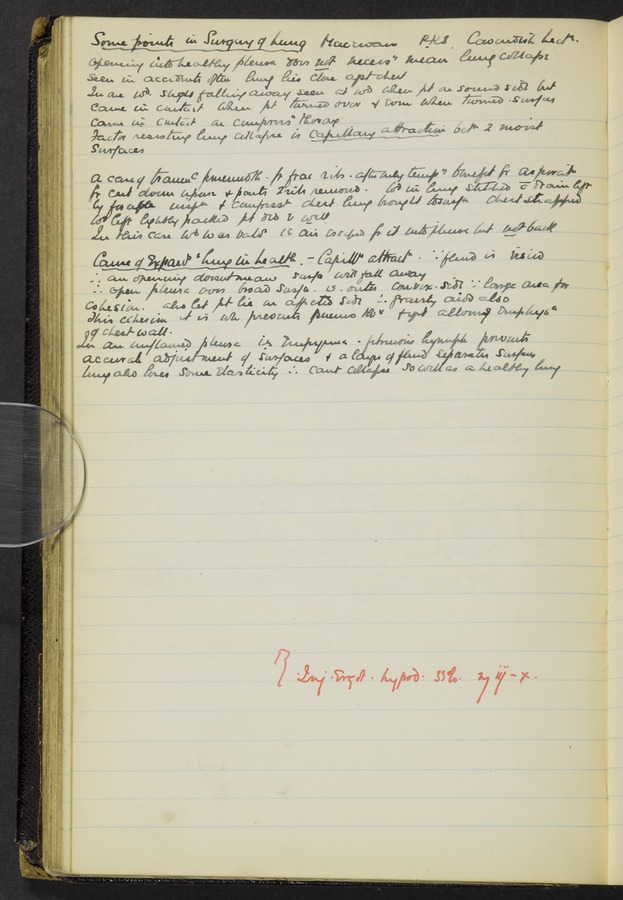 Some points in Surgery of Lung Macewan Cavendish Lectr.
opening into healthy pleura does not necessy mean lung collapse
seen in accidents often lung lies close agst chest
In one wd. falling away seen at wd when pt on sound side but
came in contact when pt turned over & when turned
came in contact on compressn thorax
Factor resisting lung collapse is capillary attraction betn 2 moist
Surfaces
a case of traumc pneumoth. fr frac ribs. only tempy benefit fr aspirat
& cut down upon & parts 2 ribs removed. wd in lung stitched c drain left
by & compress chest lung brought chest strapped
wd left lightly packed pt did v well
In this case wd was ie air escaped fr it into pleura but not back
Cause of Expansn lung in health. - Capilly attract. ∵ fluid is viscid
∴ an opening doesnt mean surfs will fall away
∴ open pleura over broad surfs. outer convex side ∵ large area for
cohesion. also let pt lie on affected side ∵ gravity aids also
This cohesion it is wh prevents & yet allowing
of chest wall.
In an inflamed pleura Empyema. fibrinous lymph prevents
accurate adjustment of surfaces & a layer of fluid separates surfaces
lung also loses some elasticity ∴ cant collapse so well as a healthy lung
℞ Inj. Ergot. hypod. iij - x.